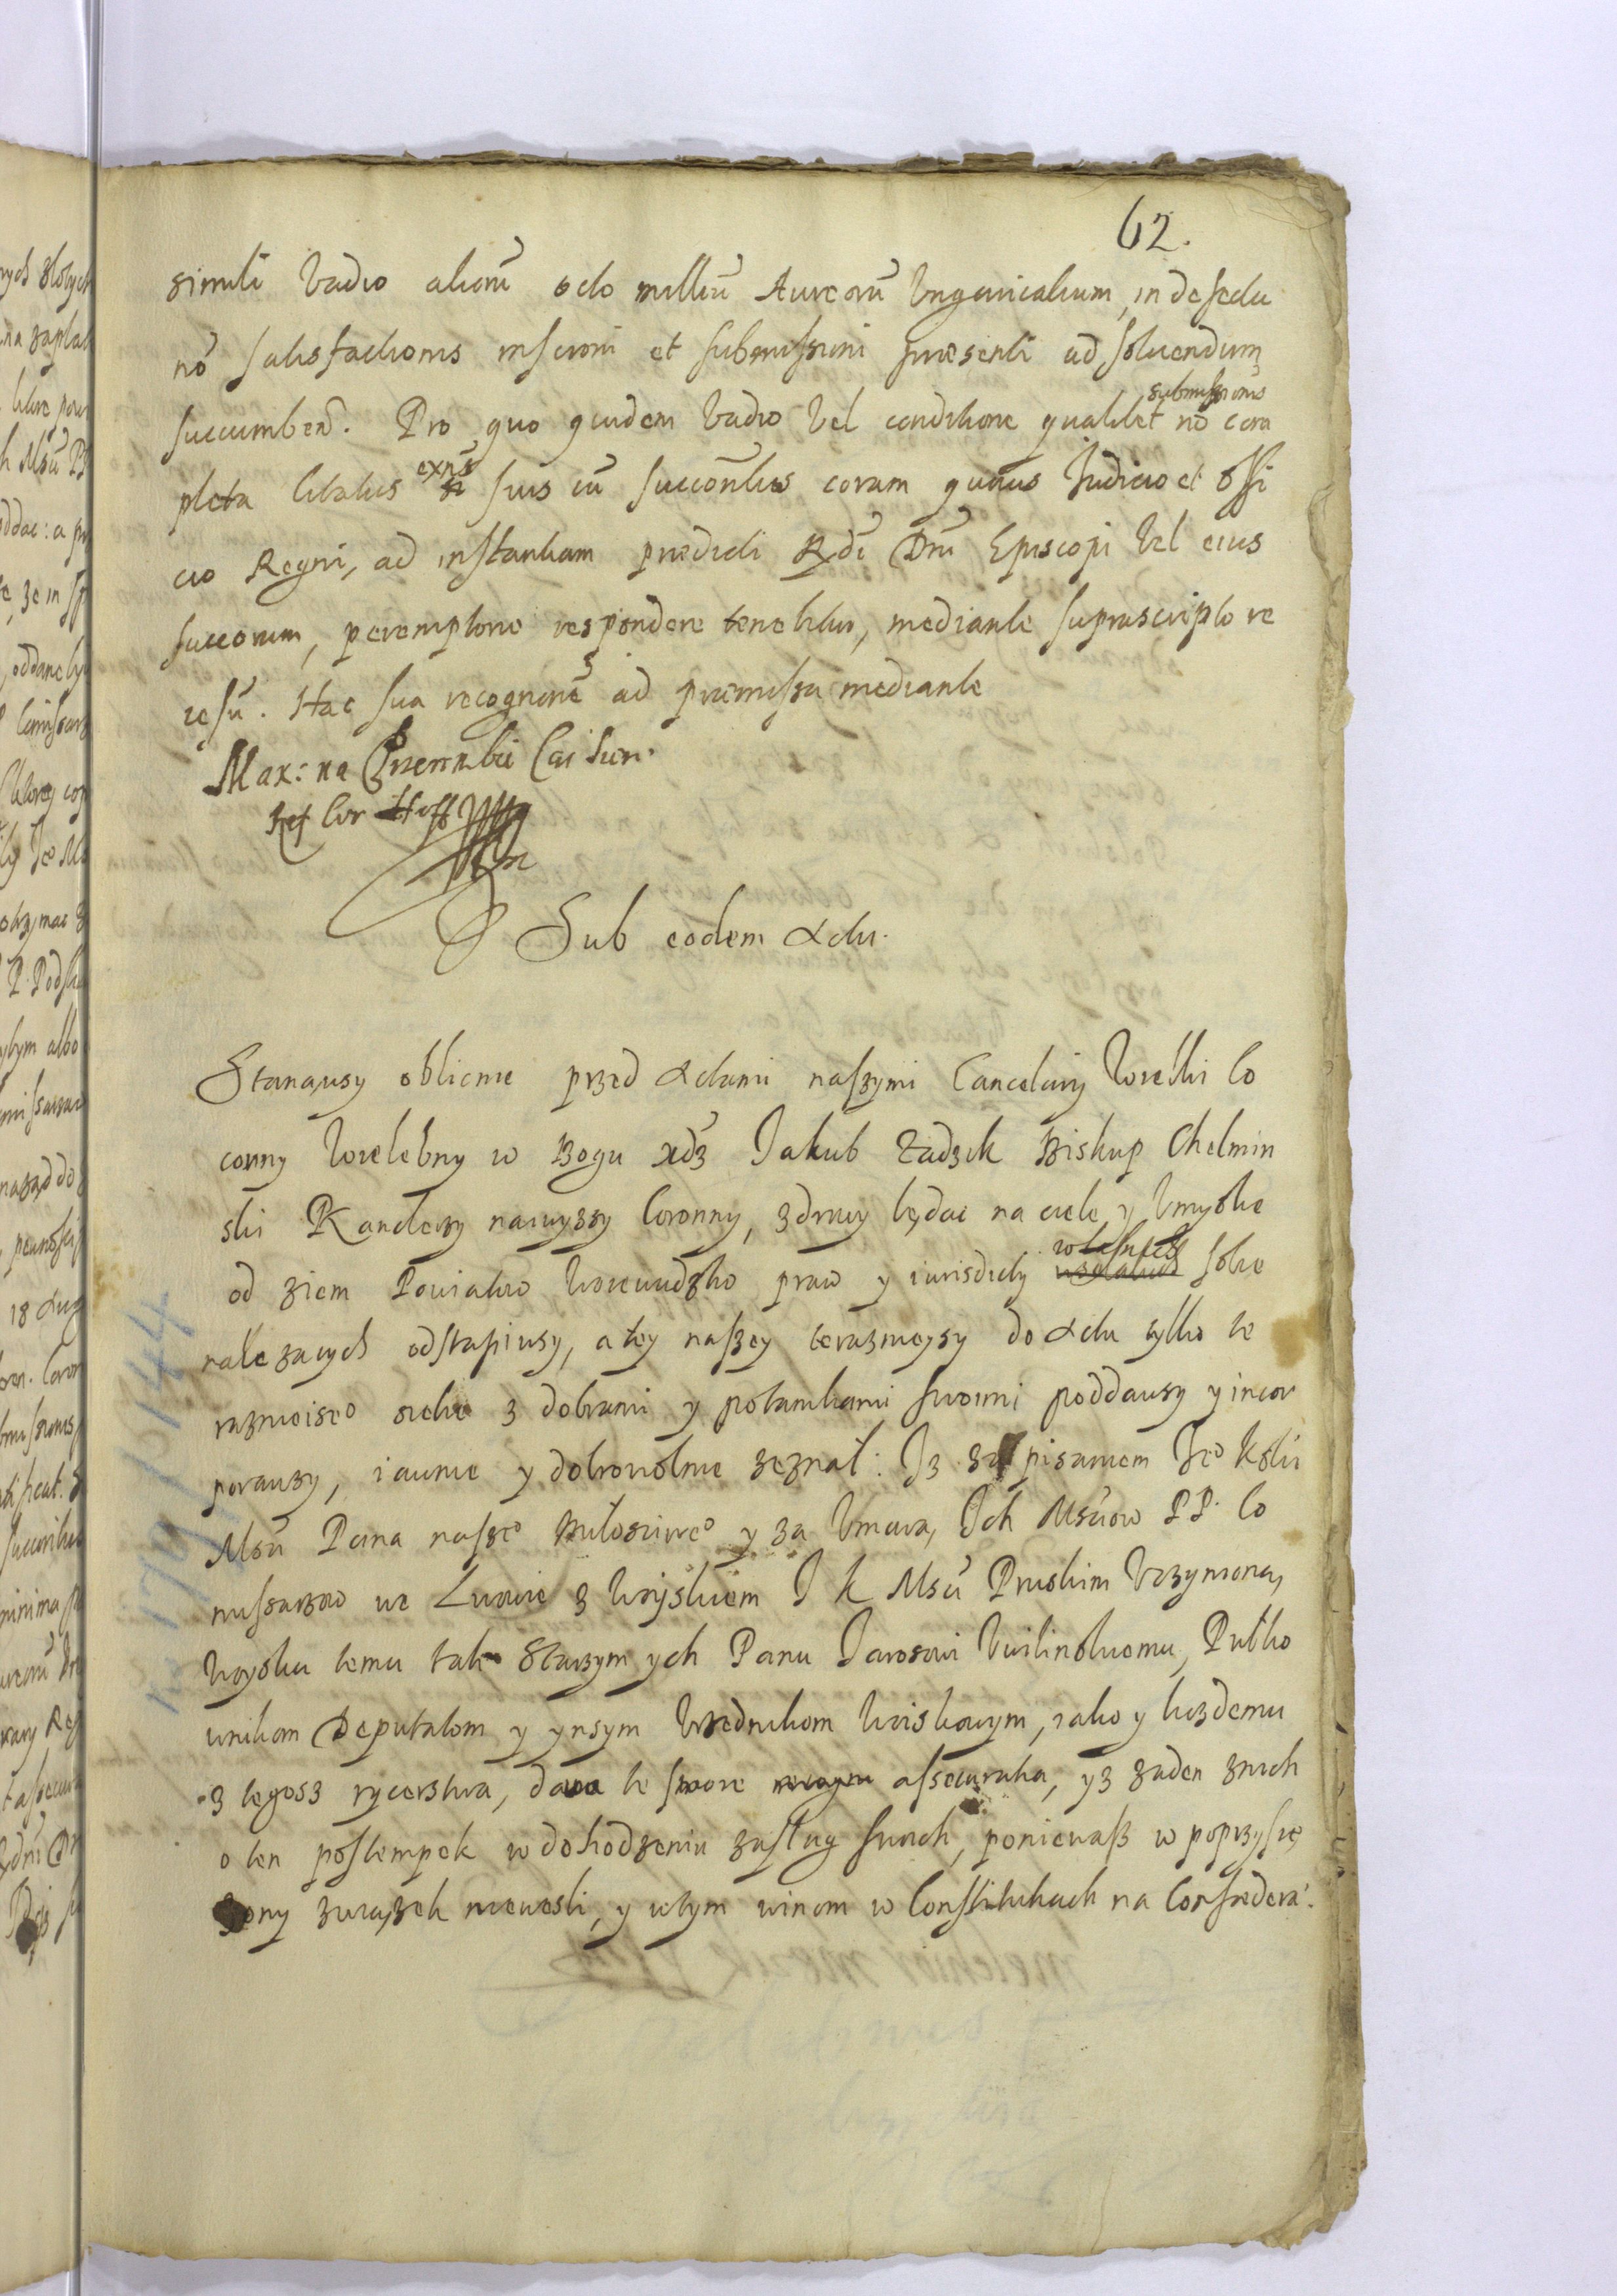 62.
simili Vadio aliorũ octo milliũ Aureorũ Vngaricalium, in defectu
nõ satisfactionis inscroni et submissioni præsenti ad soluendum
succumbeñ. Pro quo quidem Vadio Vel conditione qualibet submissionis nõ com
pleta citatus exñs suis cũ succoribus coram quouis Judicio et offi
cio Regni, ad instantiam prædicti Rdi Dñi Episcopi Vel eius
succorum, peremptorie respondere tenebitur, mediante suprascripto re
cessũ. Hac sua recognone ad præmissa mediante
Max: na Przerembiu
Ref Cor
Sub eodem Actu.
Stanąwsy oblicznie przed Actami naszymi Cancelariy Wielki Co
ronny Wielebny w Bogu xdz Jakub Zadzik Biskup Chelmin
ski Kanclerz nawyzszy Coronny, zdrowy będąc na ciele y Vmysle
od ziem Powiatow Woiewudztw praw y iurisdicty wlasnych sobie
nalezacych odstapiwsy, a tey naszey terazneysy do Actu tylko te
raznieiszo siebie z dobrami y potomkami swoimi poddawsy y incor
porawszy, iawnie y dobrowolnie zeznal: Iz za pisaniem Jeo Kroli
Msci Pana nasseo Milosciweo y za Vmową Ich Msciow PP. Co
missarzow we Lwowie z Woyskiem J K Msci Pruskim Vczynioną
Woysku temu tak Starszym ych Panu Jarosowi Vvilinskiomu, Pulko
wnikom Deputatom y ynsym Vrzednikom Woiskowym, iako y kozdemu
z tegosz rycerstwa, dawa te swoie assecuratia, yz zaden znich
o ten postempek w dochodzeniu zaslug swoich, poniewasz w poprzysię
zony związek nieweszli, y wtym winom w Constitutiach na Confoedera: